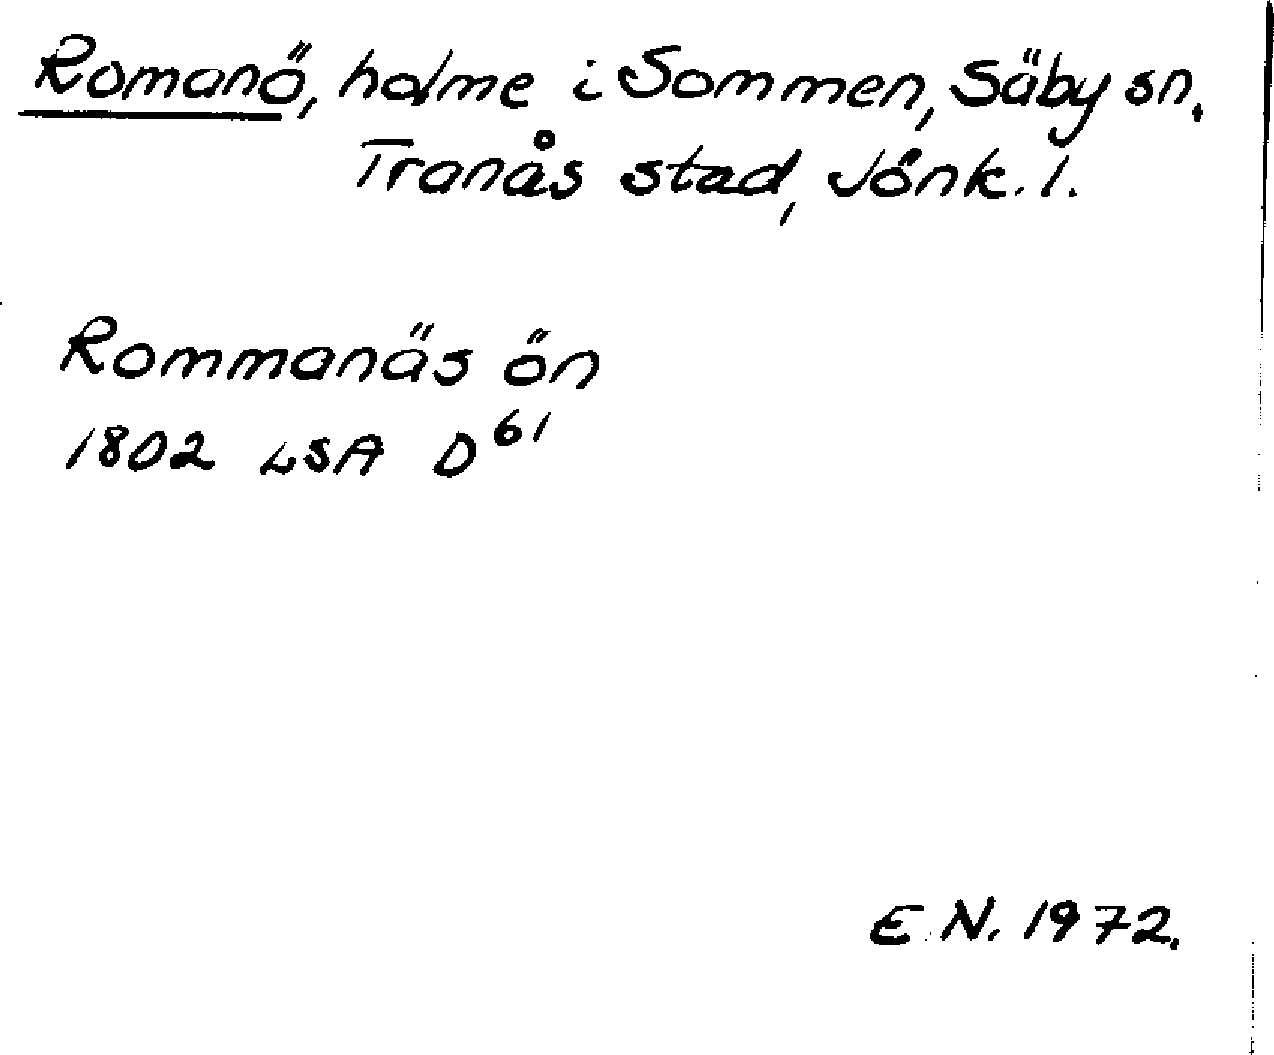 Romanö, holme i Sommen, Säby sn.
Tranås stad, Jönk. l.
Rommanäs ön
1802 LSA D61
E.N. 1972.